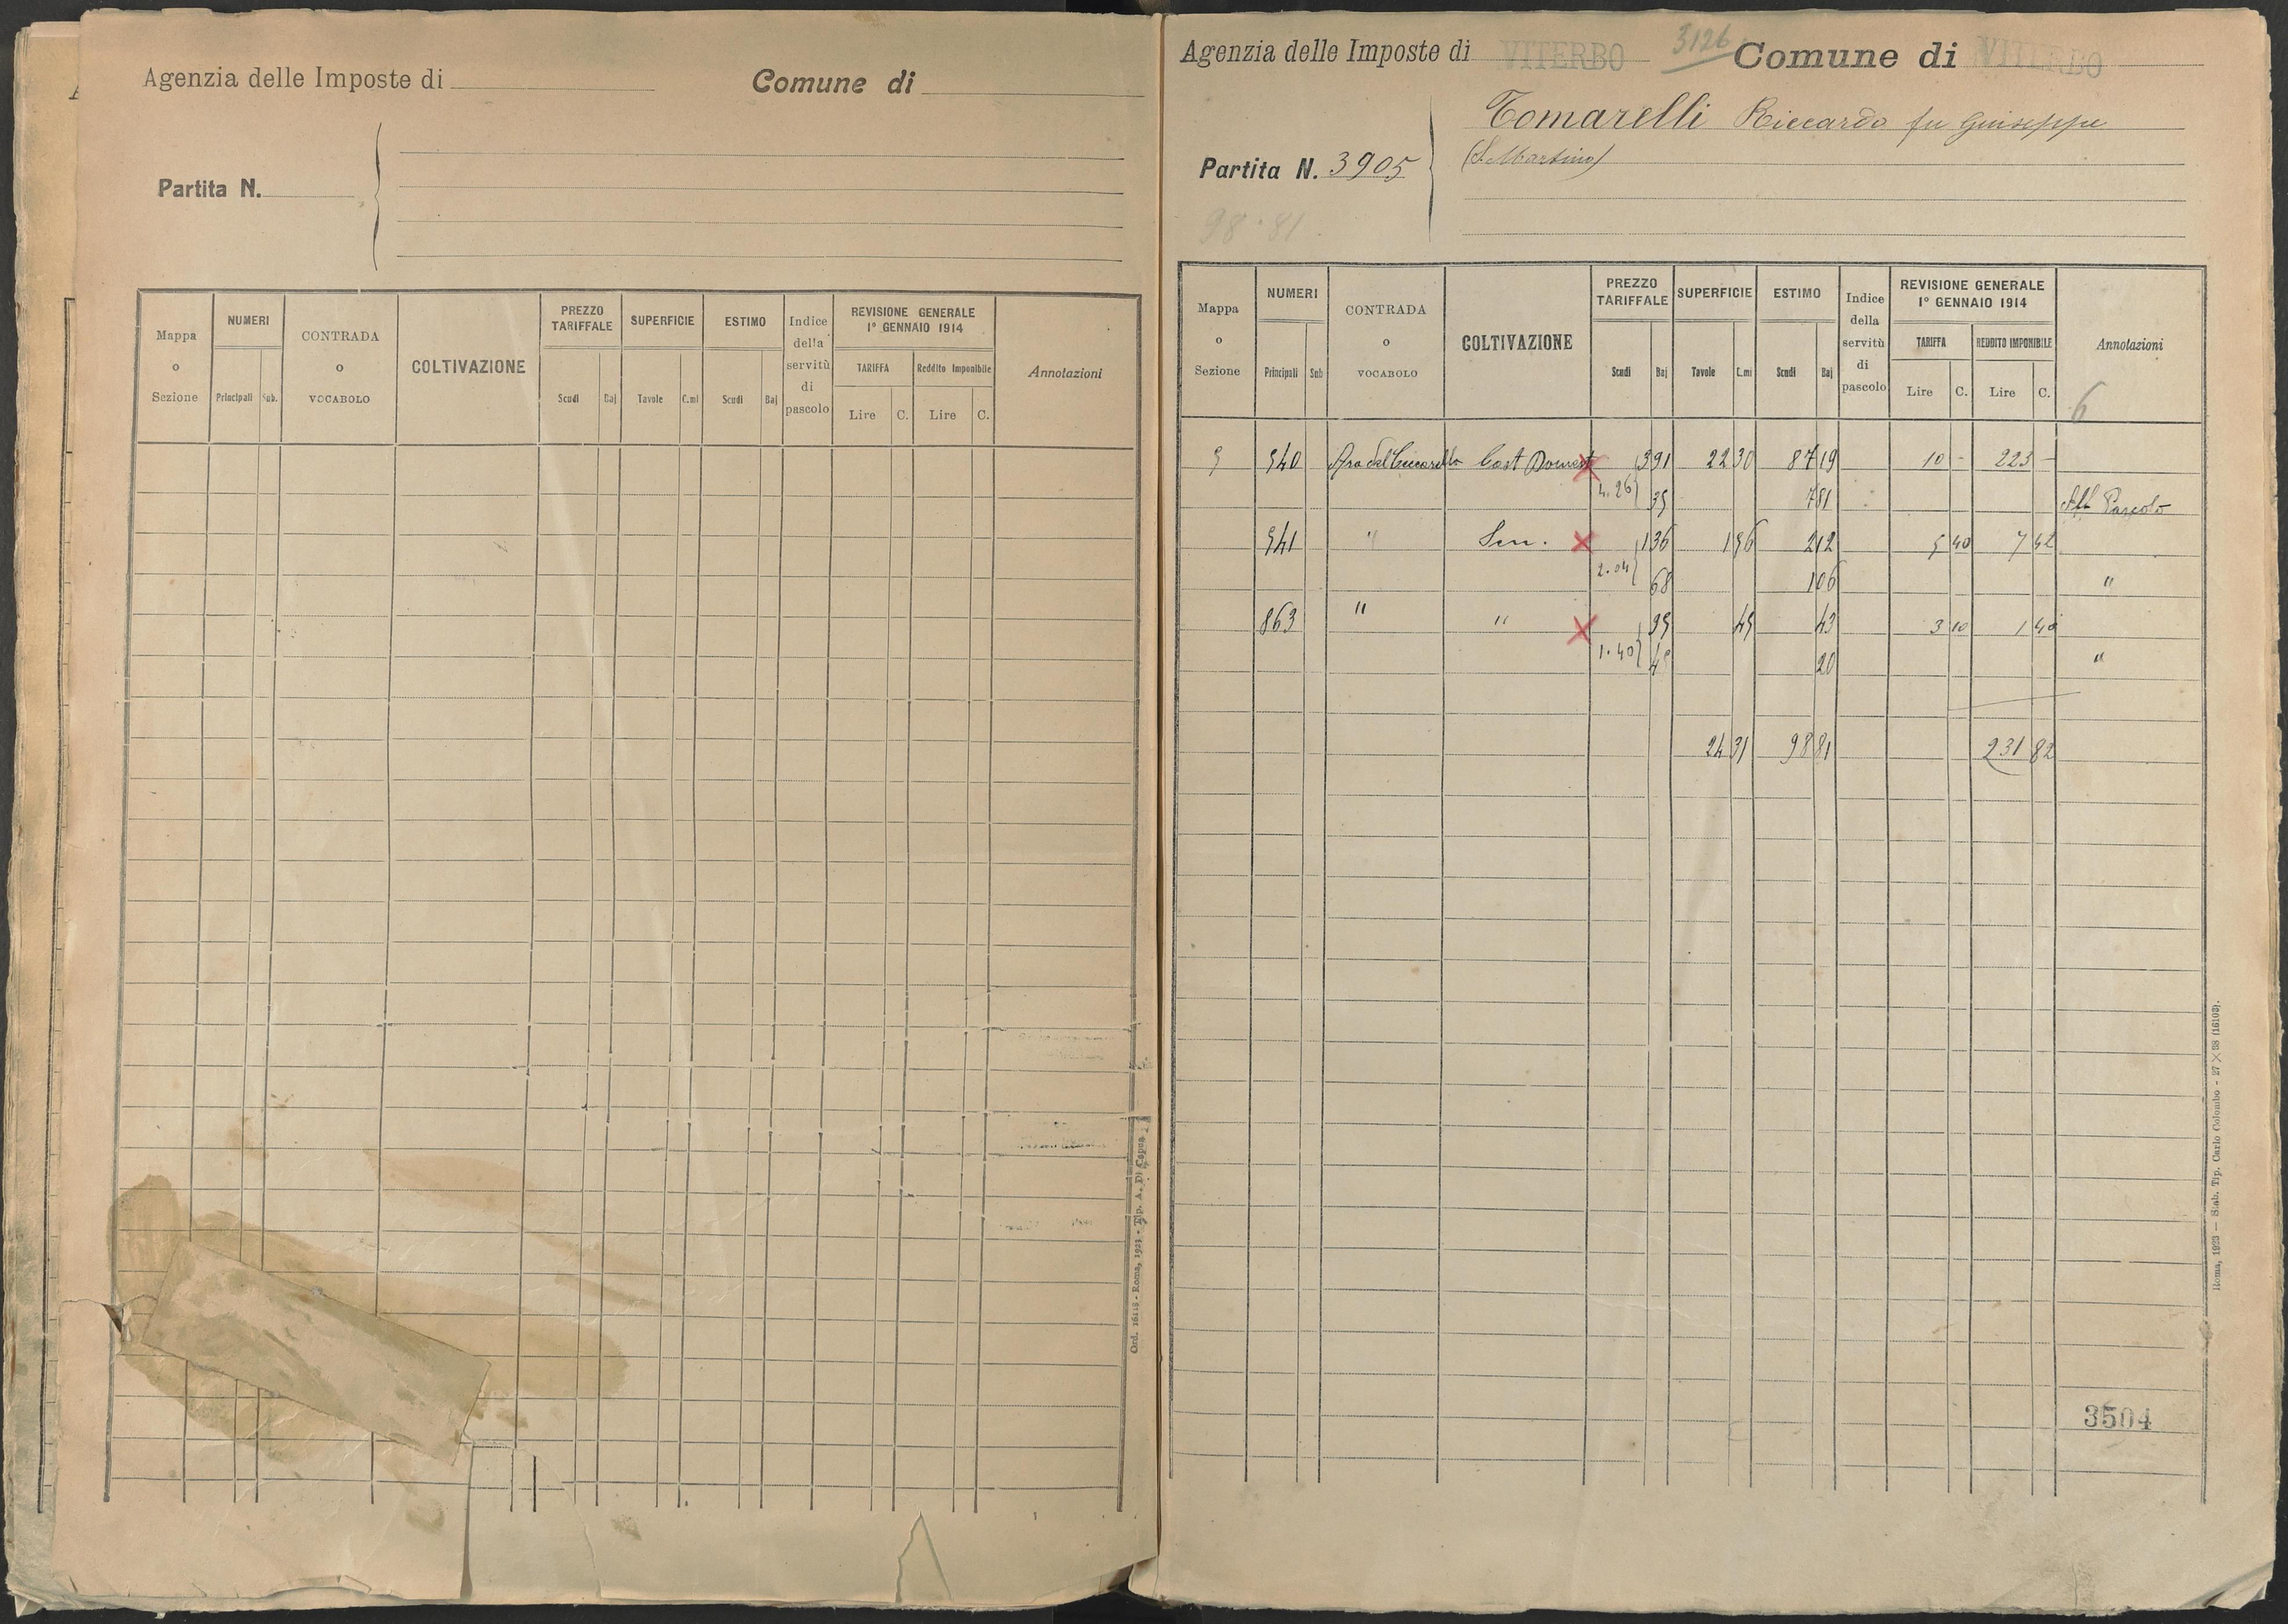 Agenzia delle Imposte di
Comune di
Partita N.
Mappa o Sezione
NUMERI
Principali
Sub.
CONTRADA o VOCABOLO
COLTIVAZIONE
PREZZO TARIFFALE
Scudi
Baj
SUPERFICIE
Tavole
C.mi
ESTIMO
Scudi
Baj
Indice della servitù di pascolo
REVISIONE GENERALE 1° GENNAIO 1914
TARIFFA
Lire
C.
Reddito Imponibile
Lire
C.
Annotazioni
Ord. 16118 - Roma, 1921 - Tip. A. Di Capua
Agenzia delle Imposte di VITERBO 3126 Comune di VITERBO
Tomarelli Riccardo fu Giuseppe
(S. Martino)
Partita N. 3905
98.81
Mappa o Sezione
NUMERI
Principali
Sub
CONTRADA o VOCABOLO
COLTIVAZIONE
PREZZO TARIFFALE
Scudi
Baj
SUPERFICIE
Tavole
C.mi
ESTIMO
Scudi
Baj
Indice della servitù di pascolo
REVISIONE GENERALE 1° GENNAIO 1914
TARIFFA
Lire
C.
REDDITO IMPONIBILE
Lire
C.
Annotazioni
6
5 540 Ara del Cast Domest 3 91 22 30 87 19 10 - 223 -
4.26 35 7 81 Aff Pascolo
541 " Sem. 1 36 1 56 2 12 5 40 7 42
2.04 68 1 06 "
863 " " 95 45 43 3 10 1 40
1.40 45 20 "
24 31 98 81 231 82
3504
Roma, 1923 — Stab. Tip. Carlo Colombo - 27 × 38 (16103).